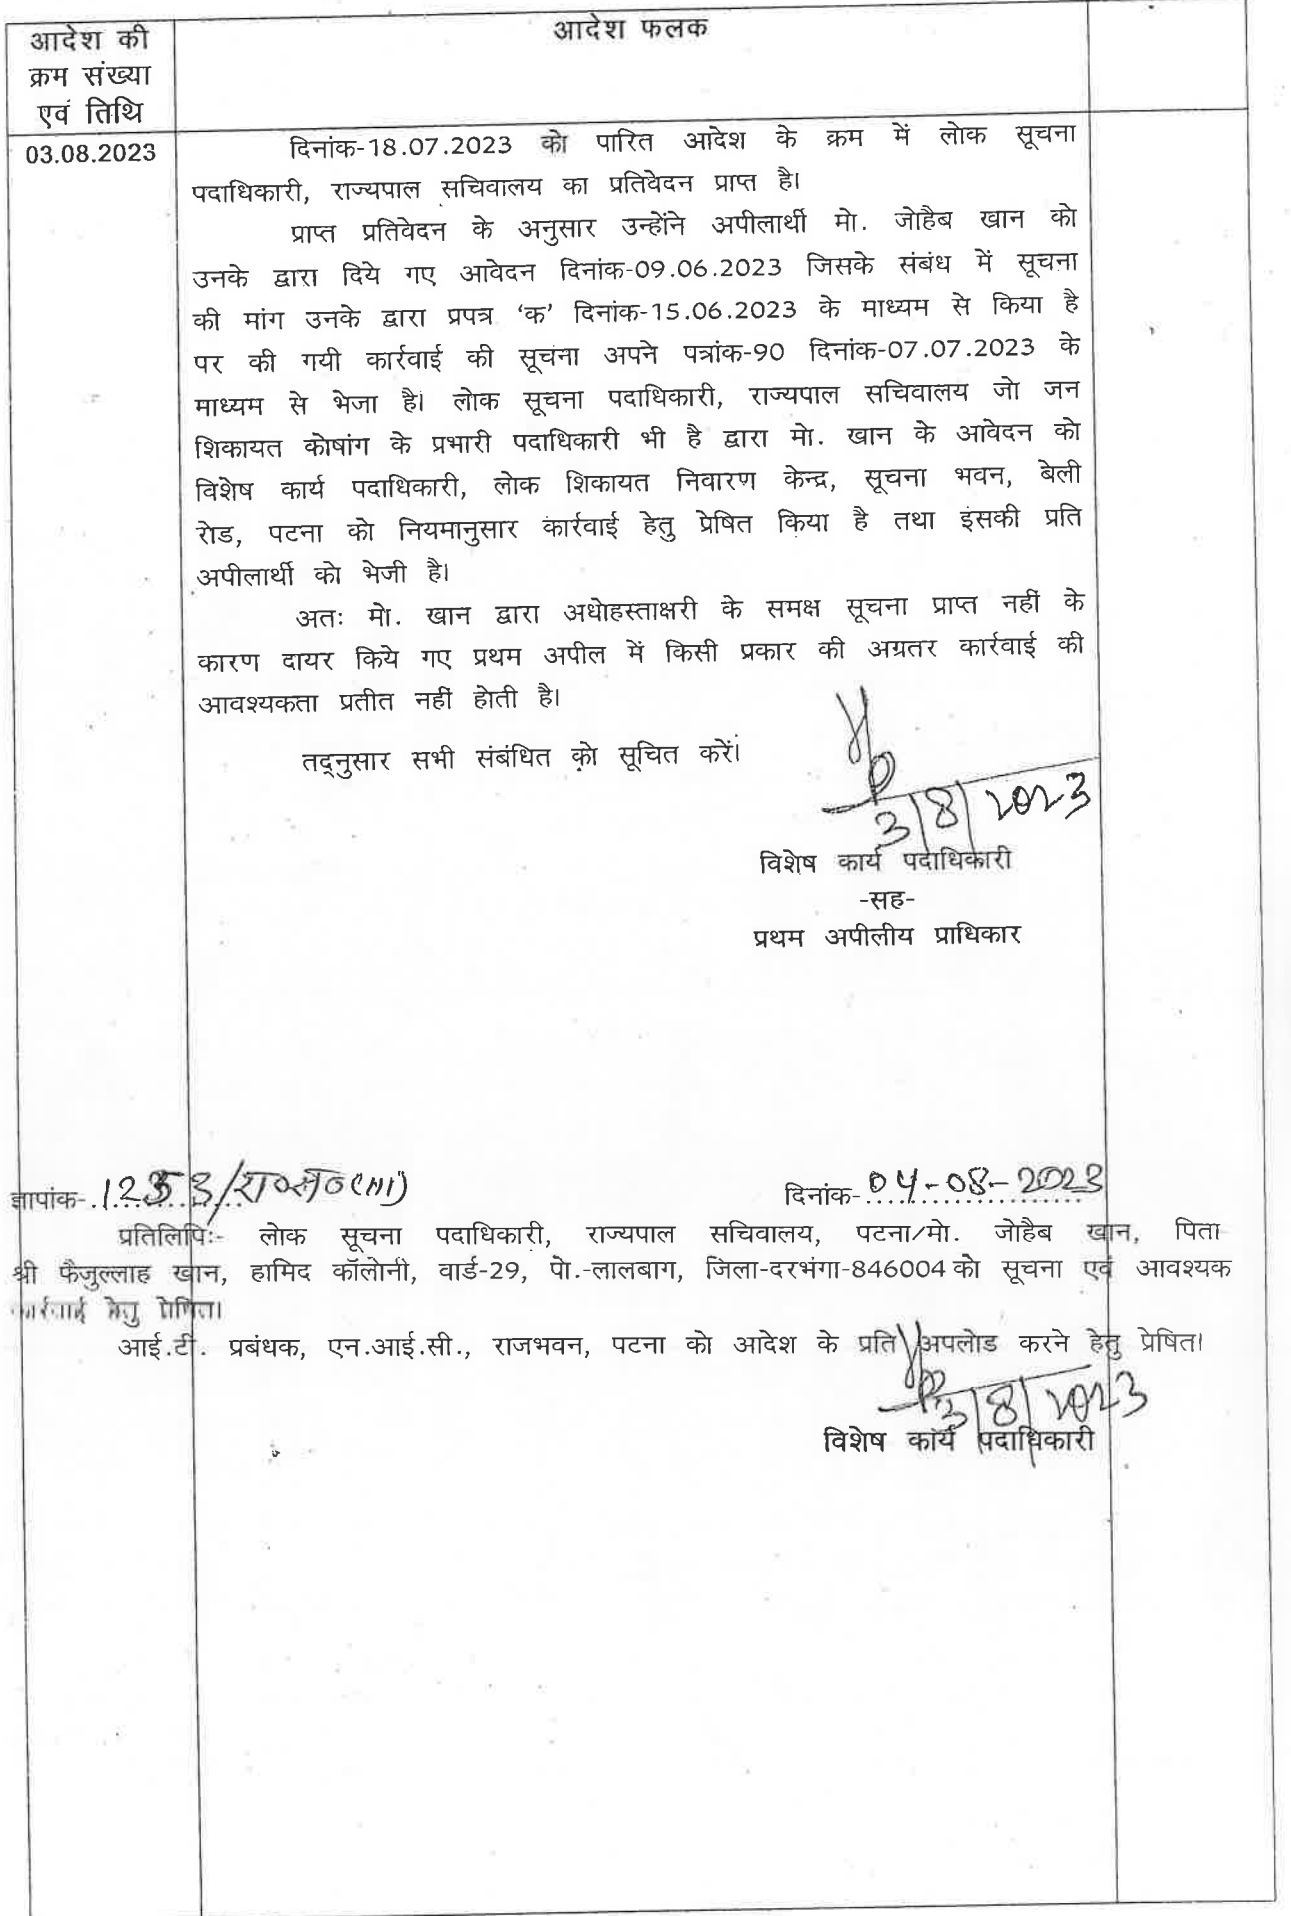 आदेश की
क्रम संख्या
एवं तिथि
आदेश फलक
03.08.2023
दिनांक-18.07.2023 को पारित आदेश के क्रम में लोक सूचना
पदाधिकारी, राज्यपाल सचिवालय का प्रतिवेदन प्राप्त है।
प्राप्त प्रतिवेदन के अनुसार उन्होंने अपीलार्थी मो. जोहैब खान को
उनके द्वारा दिये गए आवेदन दिनांक-09.06.2023 जिसके संबंध में सूचना
की मांग उनके द्वारा प्रपत्र ‘क’ दिनांक-15.06.2023 के माध्यम से किया है
पर की गयी कार्रवाई की सूचना अपने पत्रांक-90 दिनांक-07.07.2023 के
माध्यम से भेजा है। लोक सूचना पदाधिकारी, राज्यपाल सचिवालय जो जन
शिकायत कोषांग के प्रभारी पदाधिकारी भी है द्वारा मो. खान के आवेदन को
विशेष कार्य पदाधिकारी, लोक शिकायत निवारण केन्द्र, सूचना भवन, बेली
रोड, पटना को नियमानुसार कार्रवाई हेतु प्रेषित किया है तथा इसकी प्रति
अपीलार्थी को भेजी है।
अतः मो. खान द्वारा अधोहस्ताक्षरी के समक्ष सूचना प्राप्त नहीं के
कारण दायर किये गए प्रथम अपील में किसी प्रकार की अग्रतर कार्रवाई की
आवश्यकता प्रतीत नहीं होती है।
तद्नुसार सभी संबंधित को सूचित करें।
3/8/2023
विशेष कार्य पदाधिकारी
-सह-
प्रथम अपीलीय प्राधिकार
ज्ञापांक-
दिनांक-04-08-2023
प्रतिलिपिः- लोक सूचना पदाधिकारी, राज्यपाल सचिवालय, पटना/मो. जोहैब खान, पिता
श्री फैजुल्लाह खान, हामिद कॉलोनी, वार्ड-29, पो.-लालबाग, जिला-दरभंगा-846004 को सूचना एवं आवश्यक
कार्रवाई हेतु प्रेषित।
आई.टी. प्रबंधक, एन.आई.सी., राजभवन, पटना को आदेश के प्रति अपलोड करने हेतु प्रेषित।
3/8/2023
विशेष कार्य पदाधिकारी